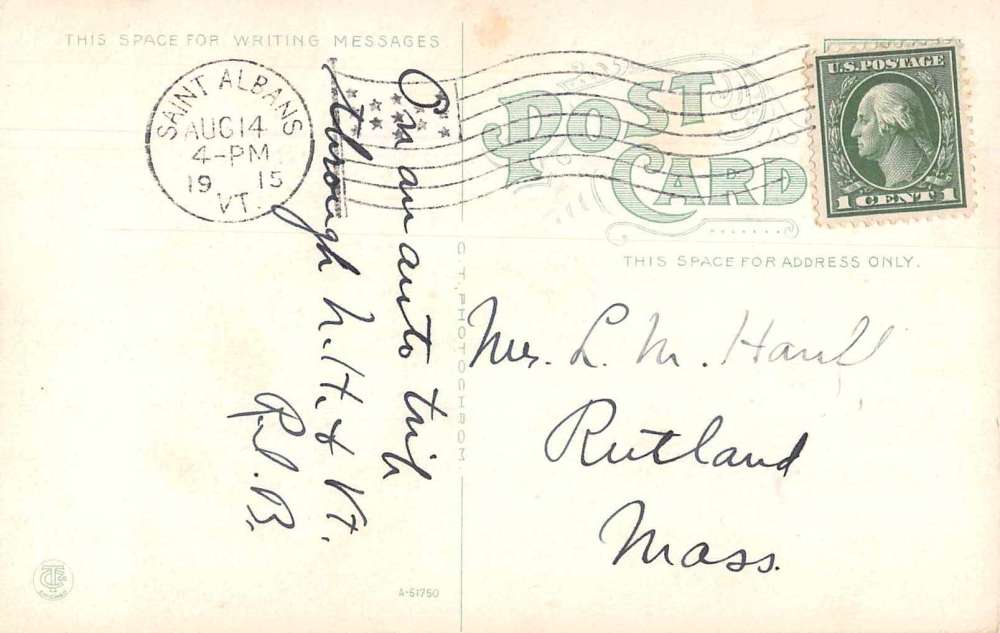 THIS SPACE FOR WRITING MESSAGES
SAINT ALBANS
AUG 14
4-PM
19 15
VT.
On an auto trip
through N.H. & Vt.
B.
POST CARD
U.S. POSTAGE
1 CENT 1
THIS SPACE FOR ADDRESS ONLY.
C.T. PHOTOCHROM
Mrs. L. M.
Rutland
Mass.
A-61750